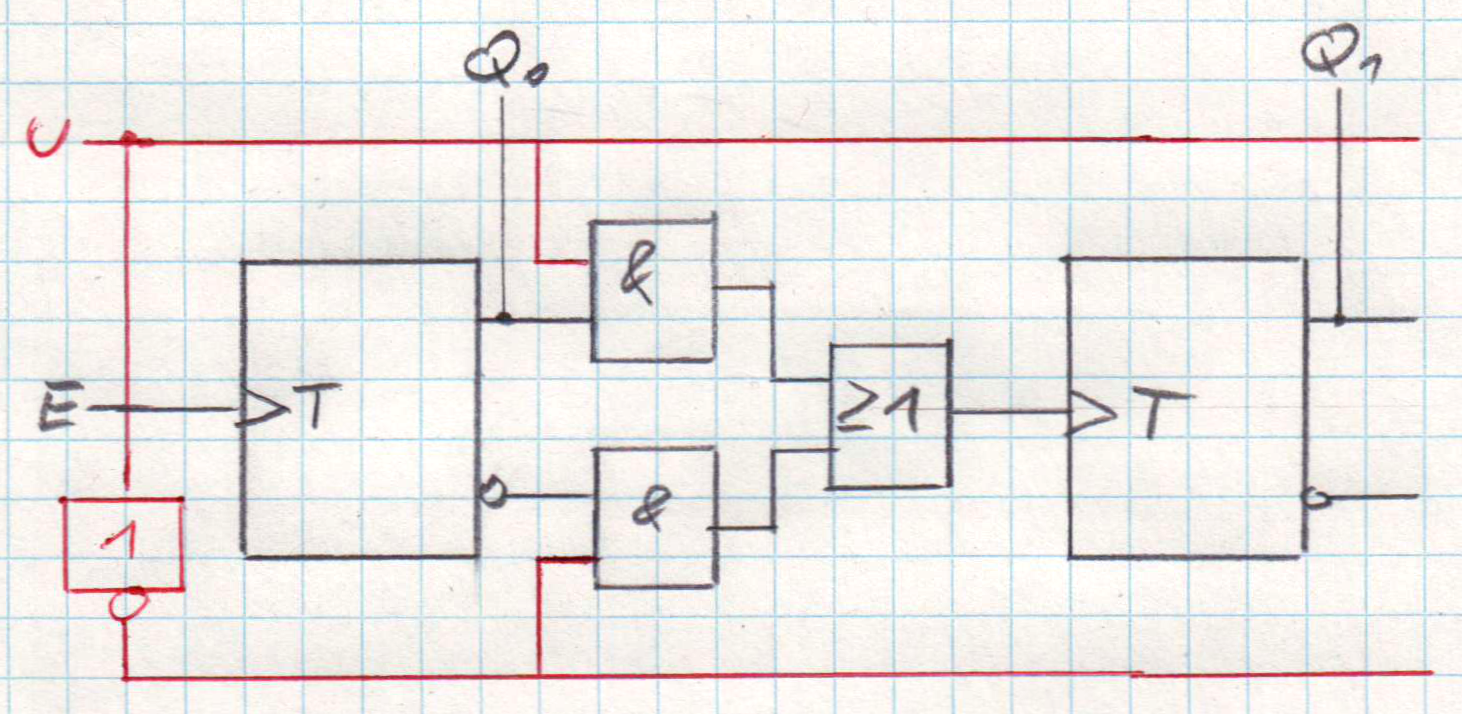 Q₀ Q₁
U
&
E T ≥1 T
&
1